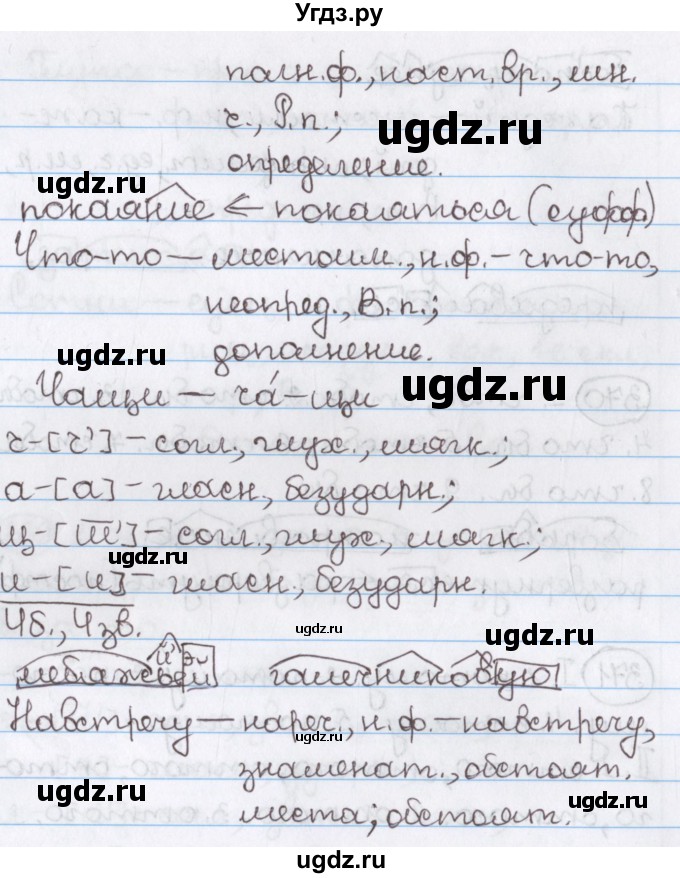 Угдз.ру
полн.ф., наст.вр., мн.
ч., Р.п.;
ugdz.ru
определение.
ugdz.ru
покаяние ← покаяться (суфф)
Что-то — местоим., н.ф. – что-то,
неопред., В.п.;
ugdz.ru
дополнение.
ugdz.ru
Чащи – ча́-щи
ч-[ч'] – согл., глух., мягк.;
а-[а] – гласн., безударн.;
щ-[ш̅'] – согл., глух., мягк.;
и-[и] – гласн., безударн.
ugdz.ru
4б., 4зв.
ugdz.ru
й' э
медвежьей галечниковую
Навстречу – нареч., н.ф. – навстречу,
ugdz.ru
знаменат., обстоят.
ugdz.ru
места; обстоят.
ugdz.ru
ugdz.ru